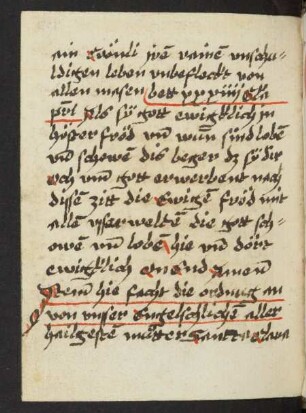 ain ewikli jrē rainē vnschu
ldigen leben vnbefleckt von
allen masen bett xxxiiij Cla
als sÿ gott ewigklich jn
höster fröd vnd wun sind loben
vnd schowen dis beger dz sÿ dir
och vnd gott erwerbent nach
disem zitt die ewigen fröd mit
allen vsserwelten die gott sch
owen vnd loben hie vnd dört
ewigklich Amen
Item hie facht die ordnug an
von vnser Engelschlichen aller
hailgesten mūtter Santta Clara